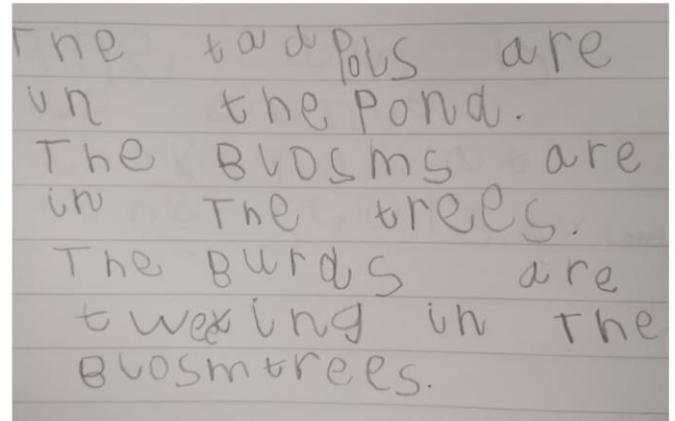 The tadpols are
in the pond.
The Blosms are
in The trees.
The Burds are
tweeting in The
Blosmtrees.